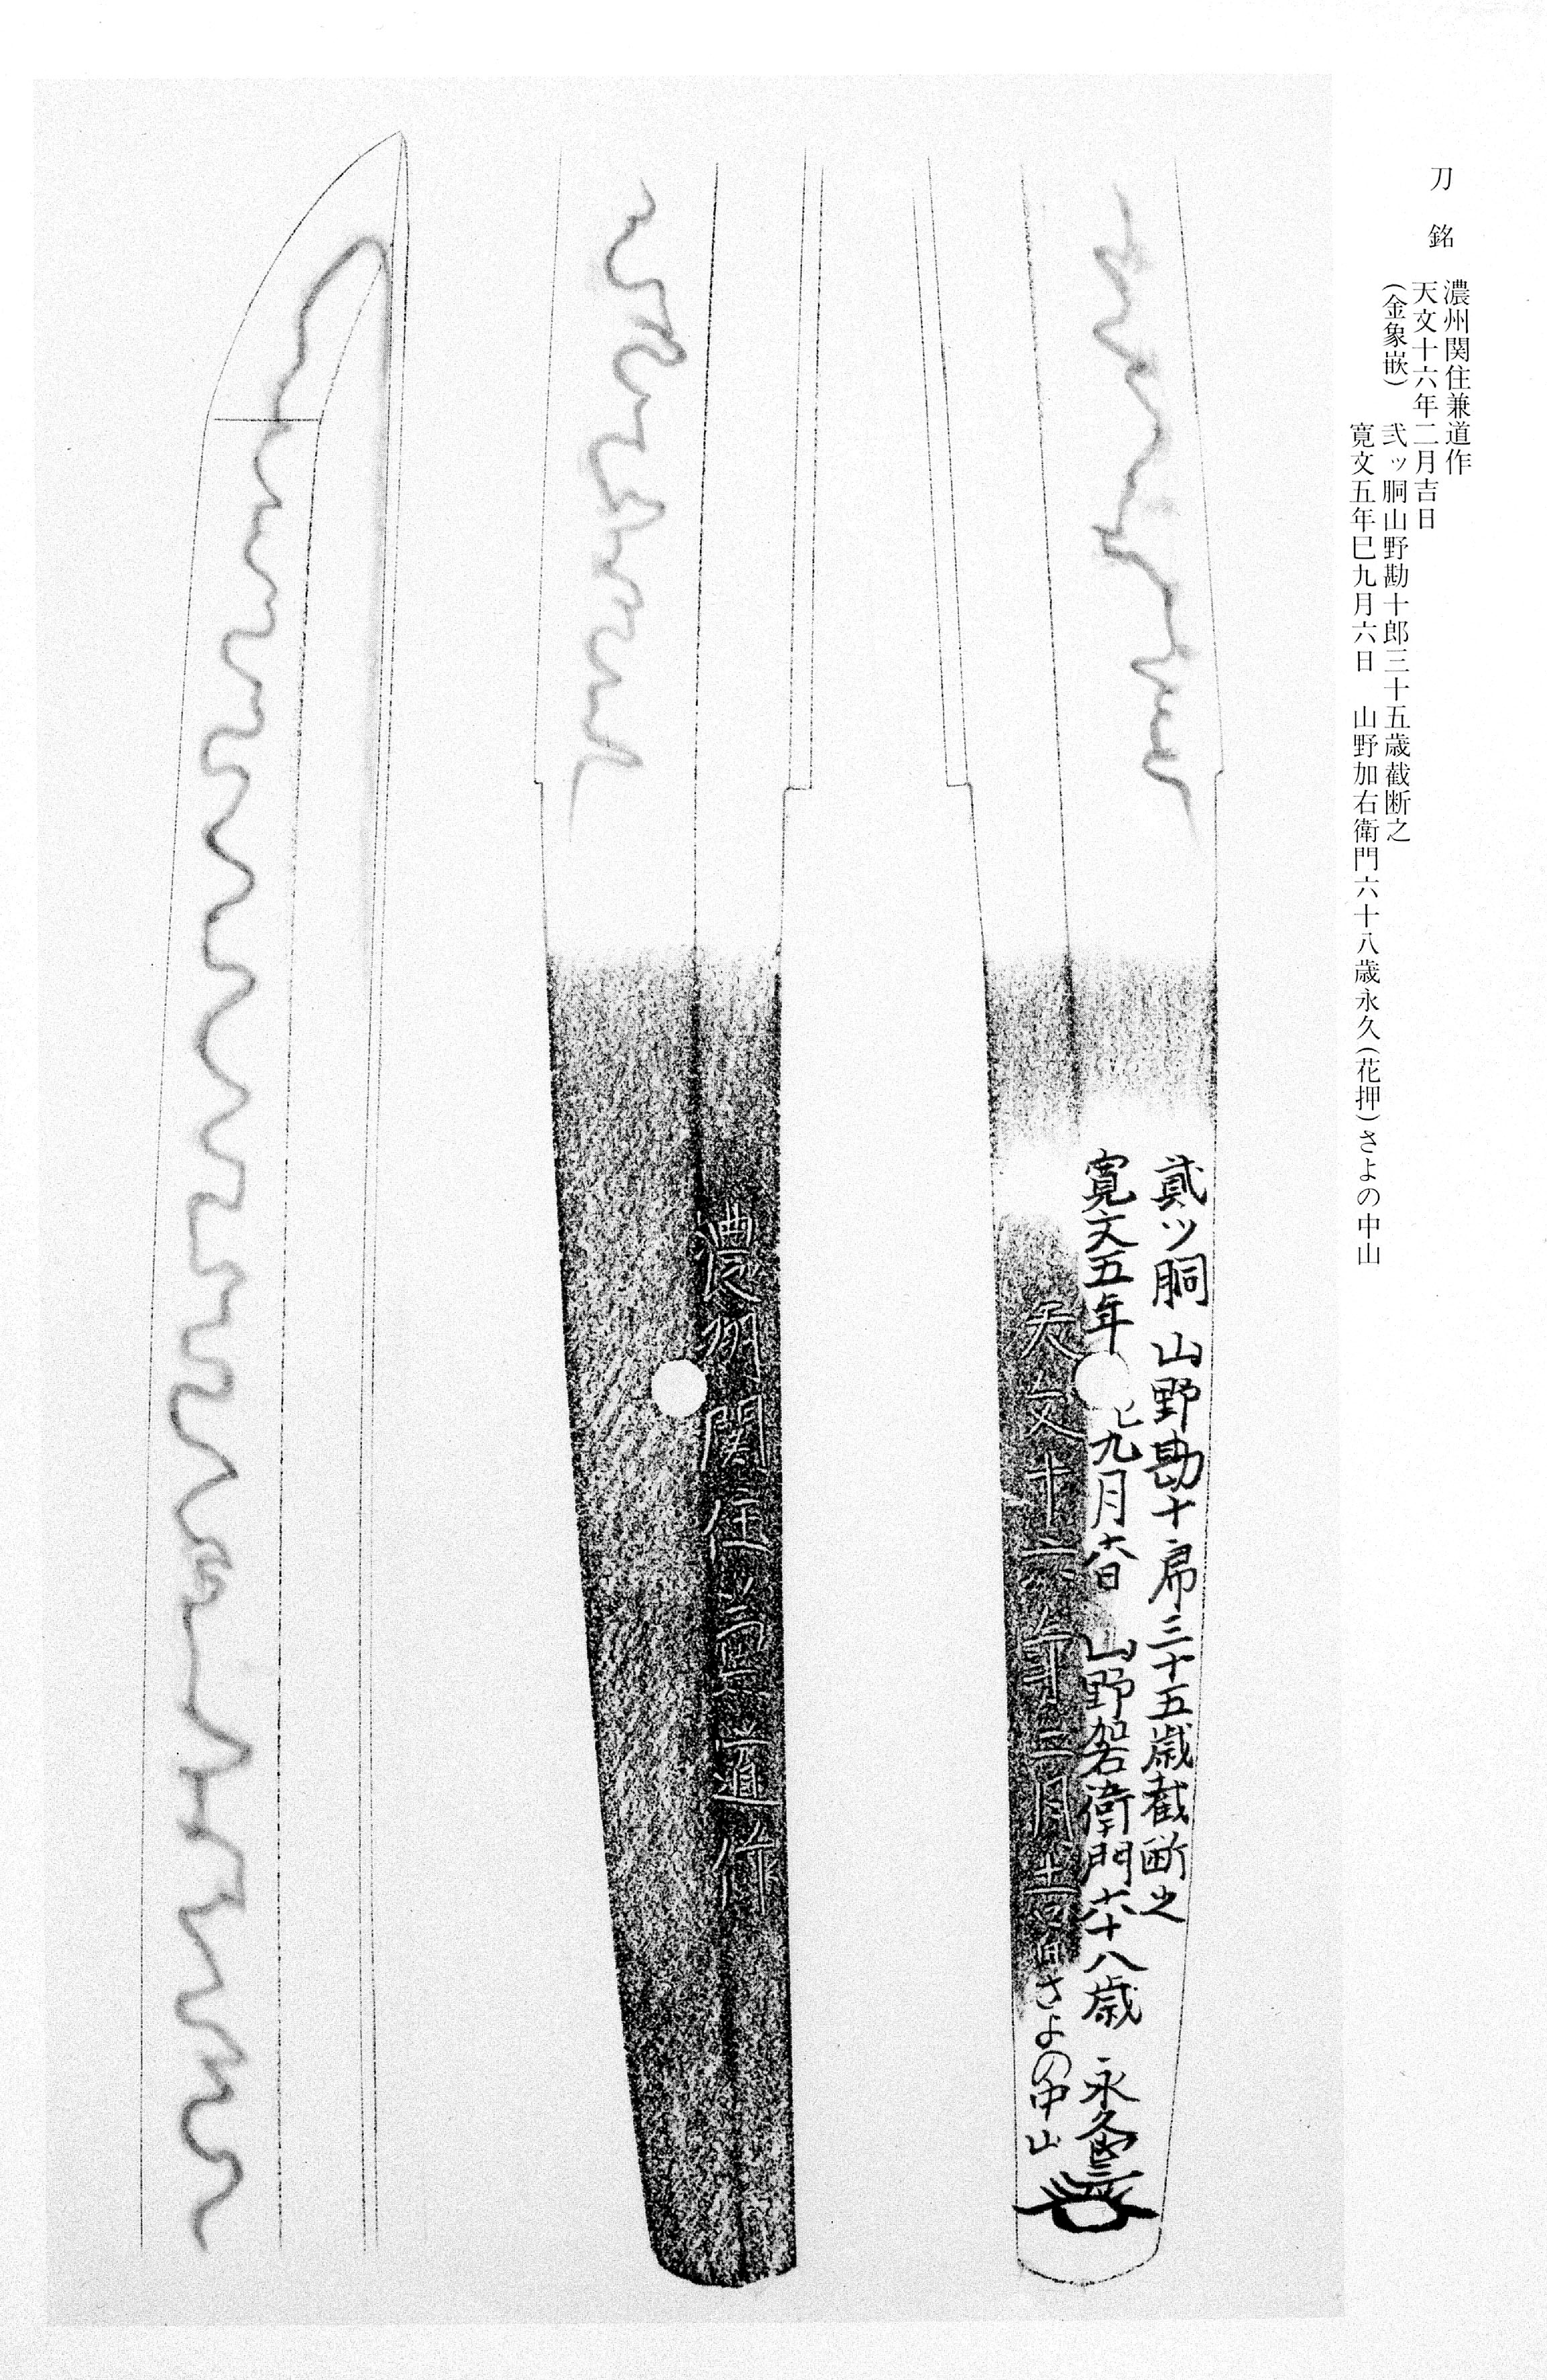 刀 銘 濃州関住兼道作
天文十六年二月吉日
(金象嵌) 弐ッ胴山野勘十郎三十五歳截断之
寛文五年巳九月六日 山野加右衛門六十八歳永久(花押)さよの中山
貳ツ胴 山野勘十郎三十五歳截断之
寛文五年巳九月六日 山野加右衛門六十八歳 永久
天文十六年二月吉日
さよの中山
濃州関住兼道作